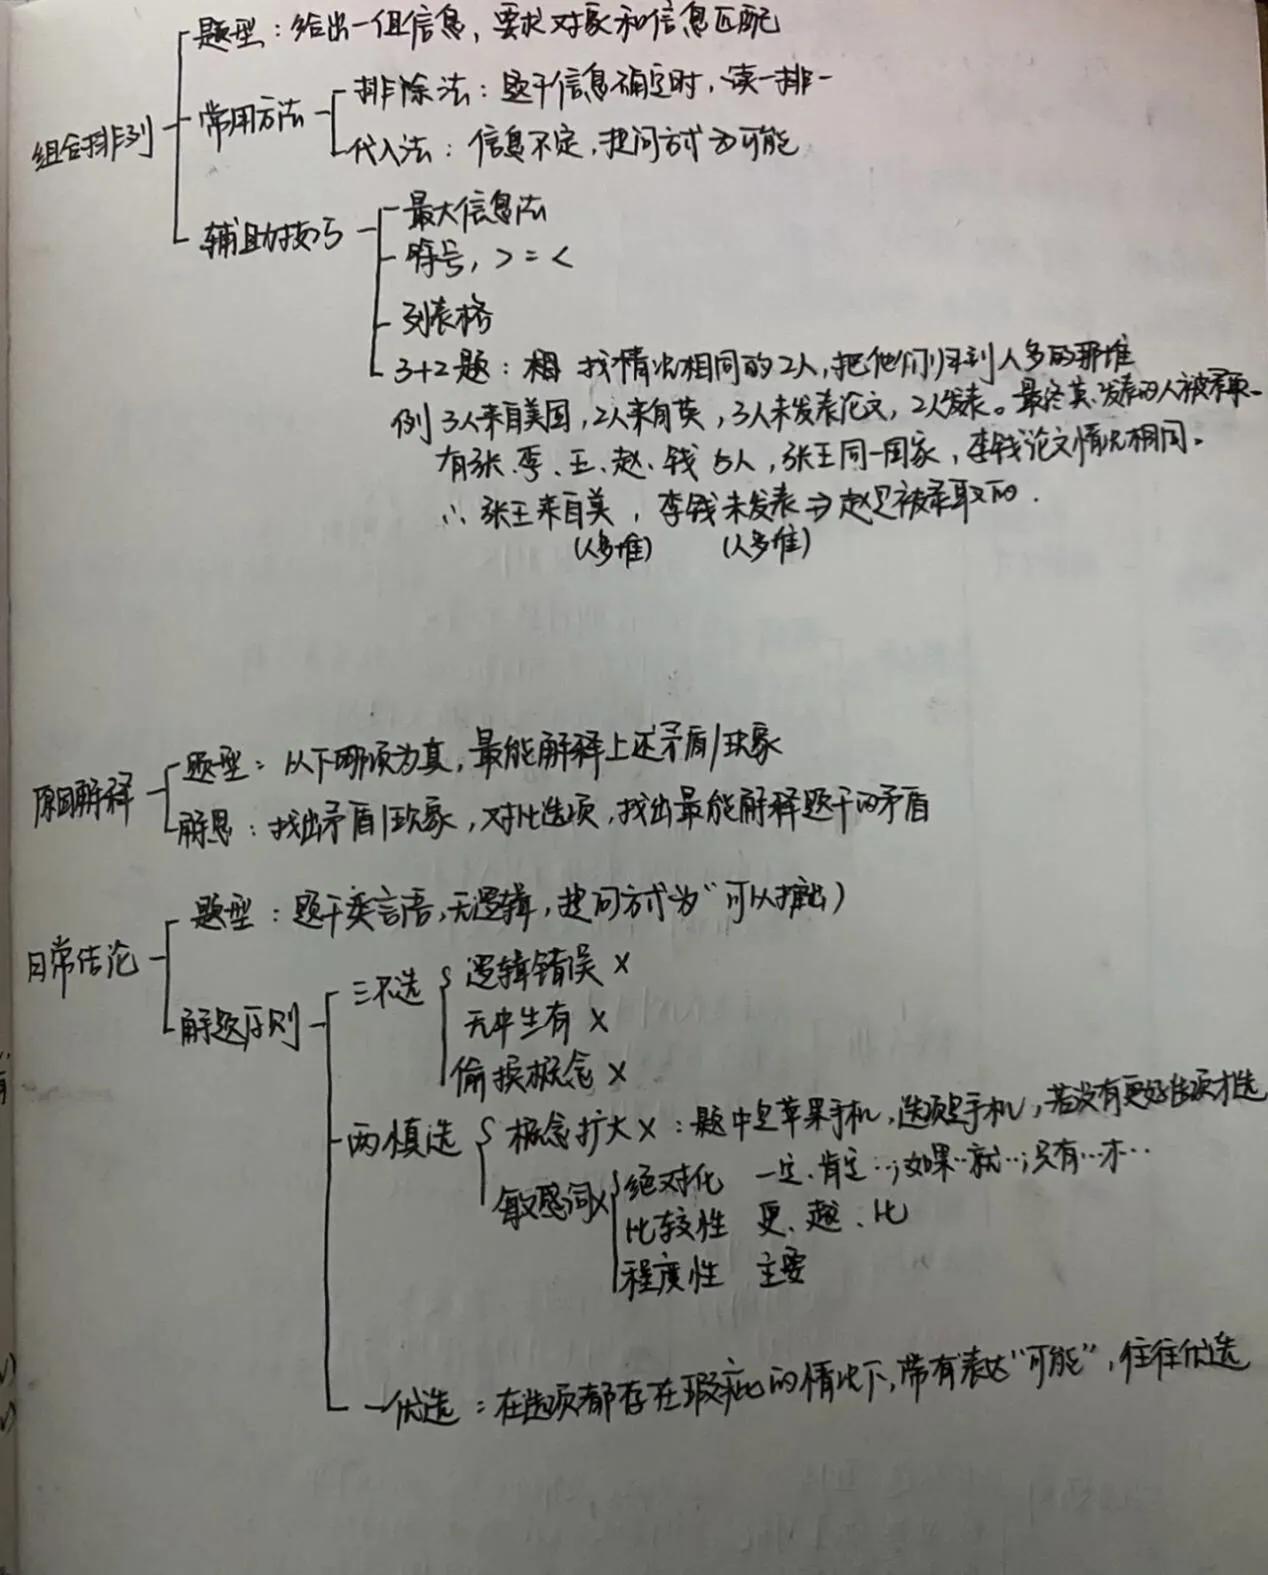 组合排列
题型：给出一组信息，要求对象和信息匹配
常用方法
排除法：题干信息确定时，读一排一
代入法：信息不定，提问方式为可能
辅助技巧
最大信息法
符号，＞＝＜
列表格
3+2题：找情况相同的2人，把他们归到人多的那堆
例 3人来自美国，2人来自英，3人未发表论文，2人发表。最终英.发表的人被录取
有张、李、王、赵、钱 5人，张王同一国家，李钱论文情况相同。
∴ 张王来自美，李钱未发表⇒赵是被录取的.
(人多堆) (人多堆)
原因解释
题型：以下哪项为真，最能解释上述矛盾/现象
解思：找出矛盾/现象，对比选项，找出最能解释题干的矛盾
日常结论
题型：题干类言语，无逻辑，提问方式为“可以推出）
解题原则
三不选
逻辑错误 ×
无中生有 ×
偷换概念 ×
两慎选
概念扩大×：题中是苹果手机，选项是手机，若没有更好选项才选
敏感词×
绝对化 一定、肯定…；如果…就…；只有…才…
比较性 更、越、比
程度性 主要
一优选：在选项都存在瑕疵的情况下，带有表达“可能”，往往优选